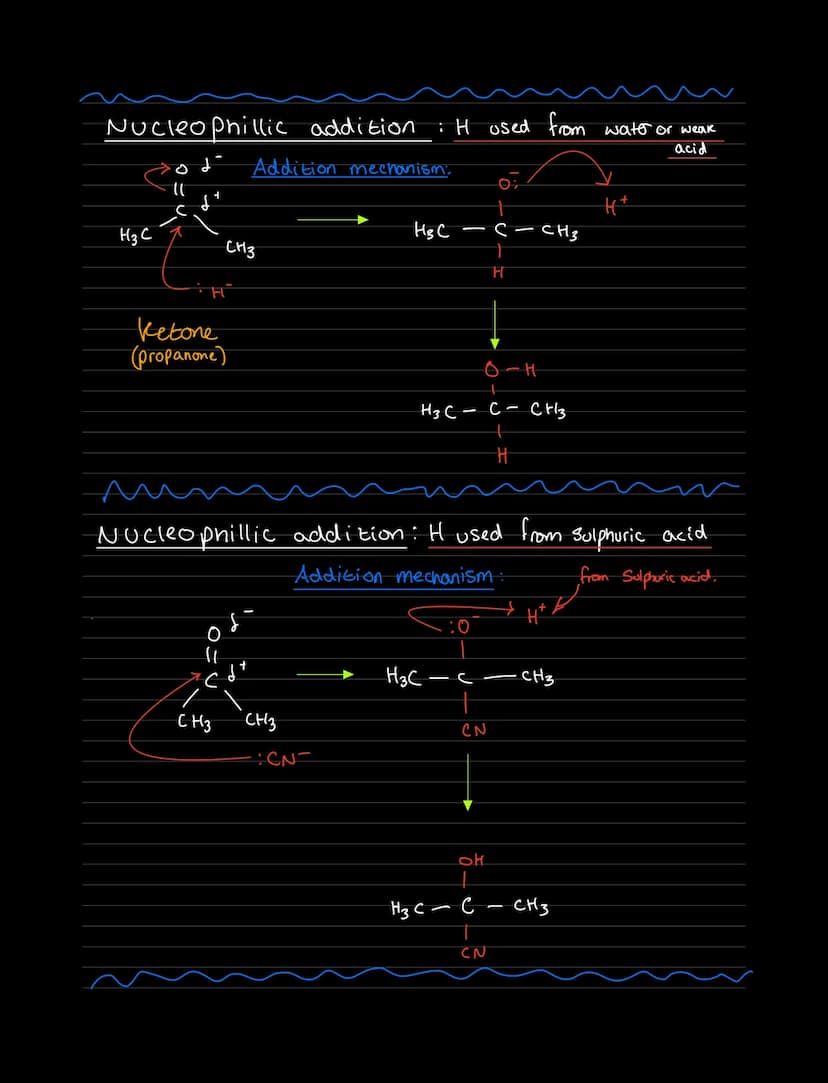 Nucleophillic addition : H used from water or weak
acid
Addition mechanism:
O δ-
||
C δ+
H3C CH3
:H-
O:-
H+
H3C — C — CH3
H
Ketone
(propanone)
O — H
H3C — C — CH3
H
Nucleophillic addition: H used from sulphuric acid
Addition mechanism:
from sulphuric acid.
O δ-
||
C δ+
CH3 CH3
:CN-
:O-
H+
H3C — C — CH3
CN
OH
H3C — C — CH3
CN